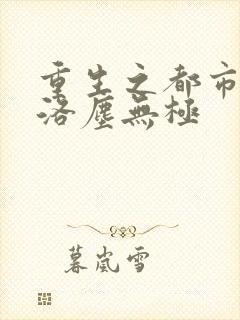 重生之都市
洛塵無極
暮嵐雪